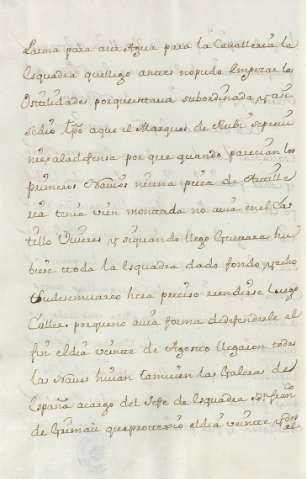 Lacma para acer Agua para la Cavalleria la
Esquadra que llego antes no pudo Empezar las
Ostilidades porque estava subordinada y asi
se dio tpõ a que el Marques de Rubi se previ
niese a la defensa por que quando parecian los
primeros Navios ninuna pieza de Artille
ria tenia vien montada no avia en el Cas
tillo Viveres y si quando llego Guevara hu
biese toda la Esquadra dado fondo y echo
Eudesmvarco hera preciso rendirse luego
Caller porque no avia forma de defenderle el
fin el dia veinte de Agosto llegaron todas
las Naves hivan tamvien las Galeras de
España a cargo del Jefe de Esquadra
de Grimau que proveerio el dia veinte y